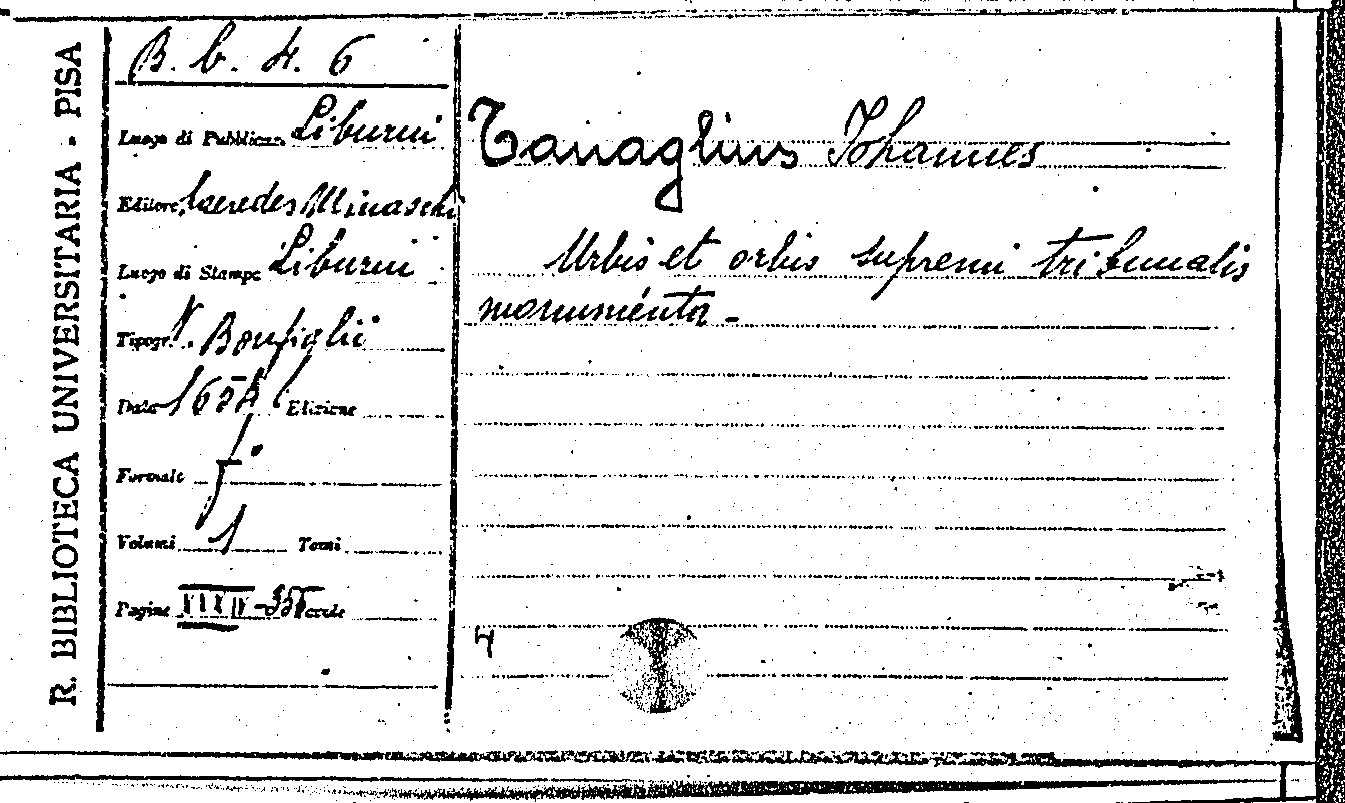 R. BIBLIOTECA UNIVERSITARIA - PISA
B. b. 4. 6
Luogo di Pubblicaz. Liburni
Editore haeredes Minaschi
Luogo di Stampa Liburni
Tipogr. V. Bonfiglii
Data 1654 Edizione
Formato f°
Volumi 1 Tomi
Pagine
Tanaglius Johannes
Urbis et orbis supremi tribunalis
monumenta -
4